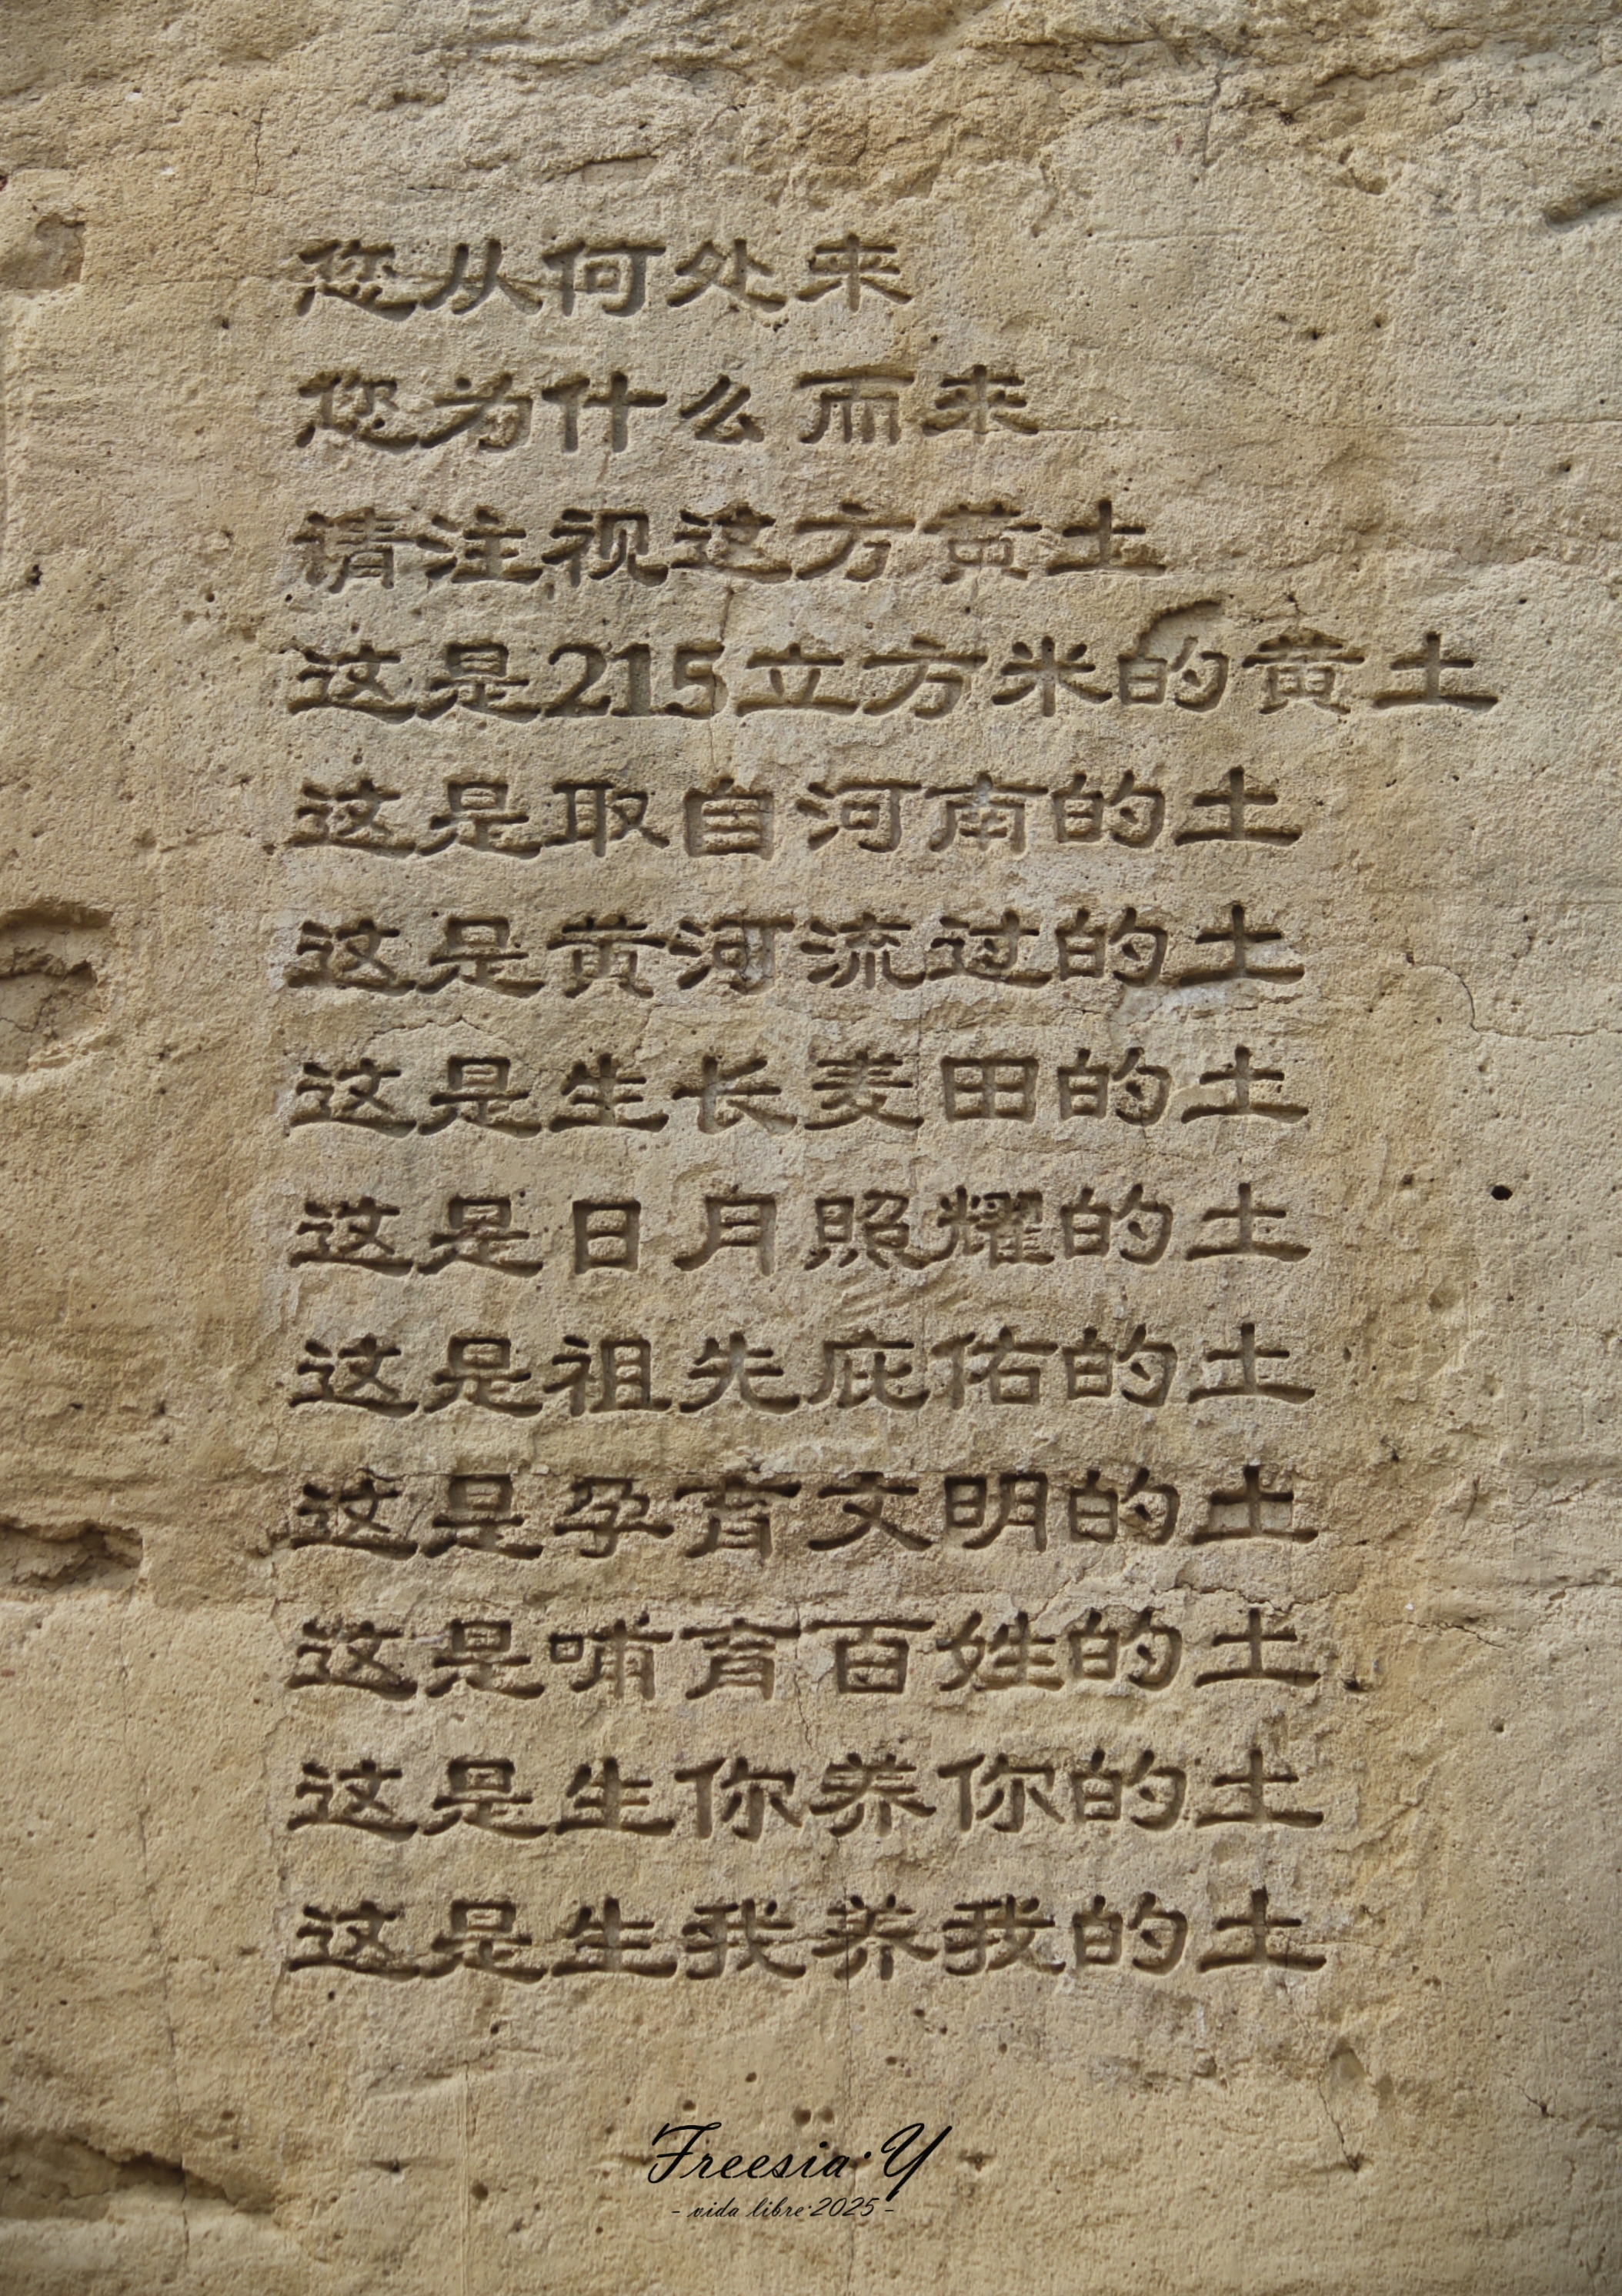 您从何处来
您为什么而来
请注视这方黄土
这是215立方米的黄土
这是取自河南的土
这是黄河流过的土
这是生长麦田的土
这是日月照耀的土
这是祖先庇佑的土
这是孕育文明的土
这是哺育百姓的土
这是生你养你的土
这是生我养我的土
Freesia·Y
- vida libre·2025 -